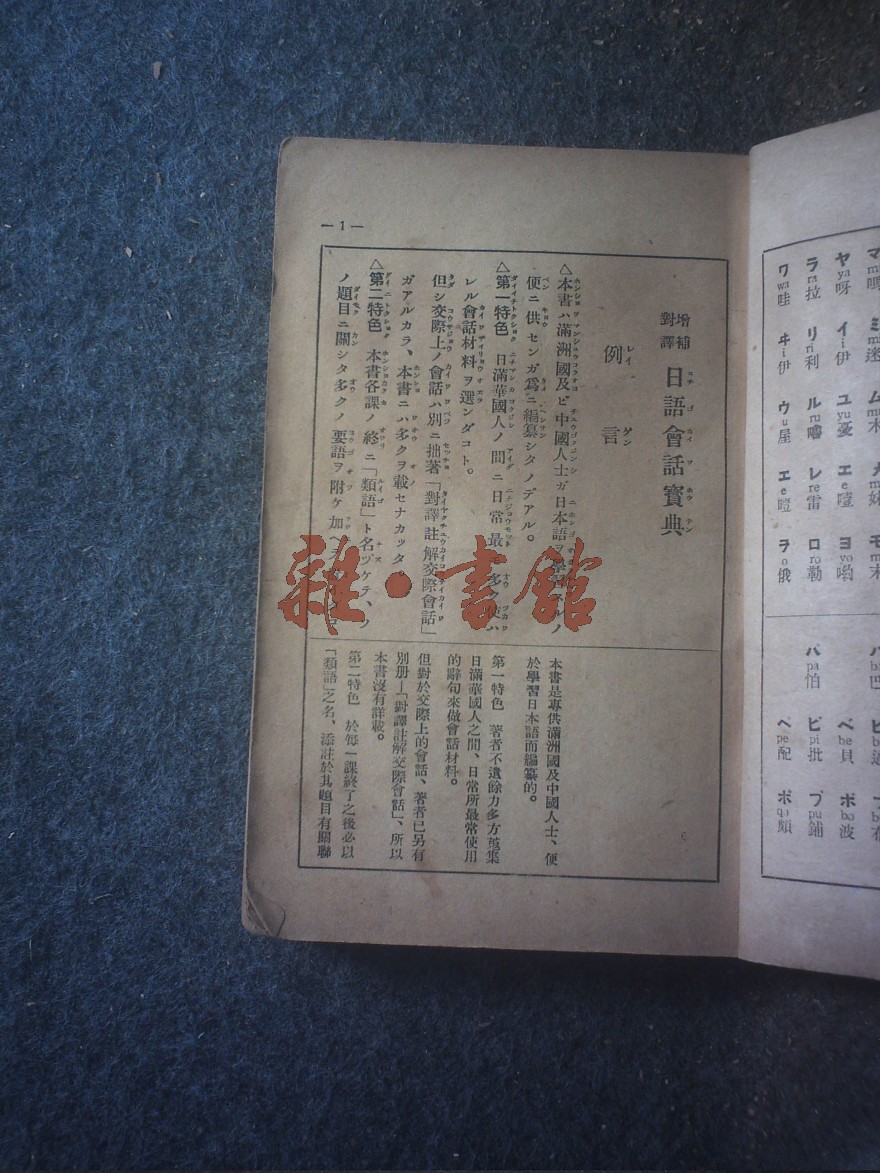 —1—
增補
對譯
日語會話寶典
例言
△本書ハ滿洲國及ビ中國人士ガ日本語ヲ
便ニ供センガ爲ニ編纂シタノデアル。
△第一特色 日滿華國人ノ間ニ日常最
レル會話材料ヲ選ンダコト。
但シ交際上ノ會話ハ別ニ拙著「對譯註解交際會話」
ガアルカラ、本書ニハ多クヲ載セナカッタ
△第二特色 本書各課ノ終ニ「類語」ト名ヅケテ、ソ
ノ題目ニ關シタ多クノ要語ヲ附ケ加
本書是專供滿洲國及中國人士、便
於學習日本語而編纂的。
第一特色 著者不遺餘力多方蒐集
日滿華國人之間、日常所最常使用
的辭句來做會話材料。
但對於交際上的會話、著者已另有
別册—「對譯註解交際會話」、所以
本書沒有詳載。
第二特色 於每一課終了之後必以
「類語」之名、添註於其題目有關聯
雜·書館
ヤ ya 呀 イ i 伊 ユ yu 憂 エ e 噎 ヨ yo 喲
ラ ra 拉 リ ri 利 ル ru 嚕 レ re 雷 ロ ro 勒
ワ wa 哇 ヰ i 伊 ウ u 屋 ヱ e 噎 ヲ o 俄
ベ be 貝 ボ bo 波
パ pa 怕 ピ pi 批 プ pu 鋪
ペ pe 配 ポ